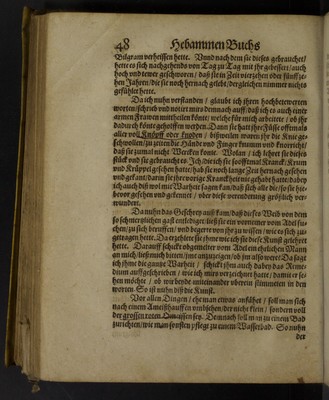 48 Hebammen Buchs
Bilgram verheissen hette. Vnnd nach dem sie dieses gebrauchet/
hette es sich nachgehends von Tag zu Tag mit jhr gebessert/ auch
hoch vnd tewer geschworen/ daß sie in Zeit vierzehen oder fünffze-
hen Jahren/ die sie noch hernach gelebt/ dergleichen nimmer nichts
gefühlet hette.
Da ich nuhn verstanden/ glaubt ich jhren hochbetewerten
worten/ schreib vnd
armen Frawen mittheilen könte/ welche für mich arbeitet/ ob jhr
dadurch könte geholffen werden. Dann sie hatt jhre Füsse offtmals
aller voll Knöpff oder knoden/ bißweilen waren jhr die Knie ge-
schwollen/ zu zeiten die Hände vnd Finger krumm vnd knorricht/
daß sie zumal nicht Wercken konte. Wolan/ ich lehret sie dieses
stück vnd sie gebraucht es. Ich/ die ich sie so offtmal Kranck/ Krum
vnd Krüppel gesehen hatte/ hab sie noch lange Zeit hernach gesehen
vnd gekant/ darin sie jhre vorige Kranckheit nie gehabt hatte/ daher
ich auch diß wol mit Warheit sagen kan/ daß sich alle die/ so sie hie-
bevor gesehen vnd gekennet/ ober diese verenderung größlich ver-
wundert.
Da nuhn das Geschrey auß kam/ daß dieses Weib von dem
so schmertzlichen gast entledigt/ ließ sie ein vornemer vom Adel su-
chen/ zu sich beruffen/ vnd begerte von jhr zu wissen/ wie es sich zu-
getragen hette. Da erzehlete sie jhme wie ich sie diese Kunst gelehret
hette. Darauff schickt obgemelter vom Adel ein ehrlichen Mann
an mich/ ließ mich bitten/ jme anzuzeigen/ ob jhm also were? Da sagt
ich jhme die gantze Warheit/ schickt jhm auch dabey das Reme-
dium auffgeschrieben/ wie ich mirs verzeichnet hatte/ damit er se-
hen möchte/ ob wir beyde miteinander vberein stimmeten in den
worten. So ist nuhn diß die Kunst.
Vor allen Dingen/ ehe man etwas anfähet/ soll man sich
nach einem Ameißhauffen vmbsehen/ der nicht klein/ sondern voll
der grossen roten Omeissen sey. Demnach soll man zu einem Bad
zurichten/ wie man sonsten pflegt zu einem Wasserbad. So nuhn
der